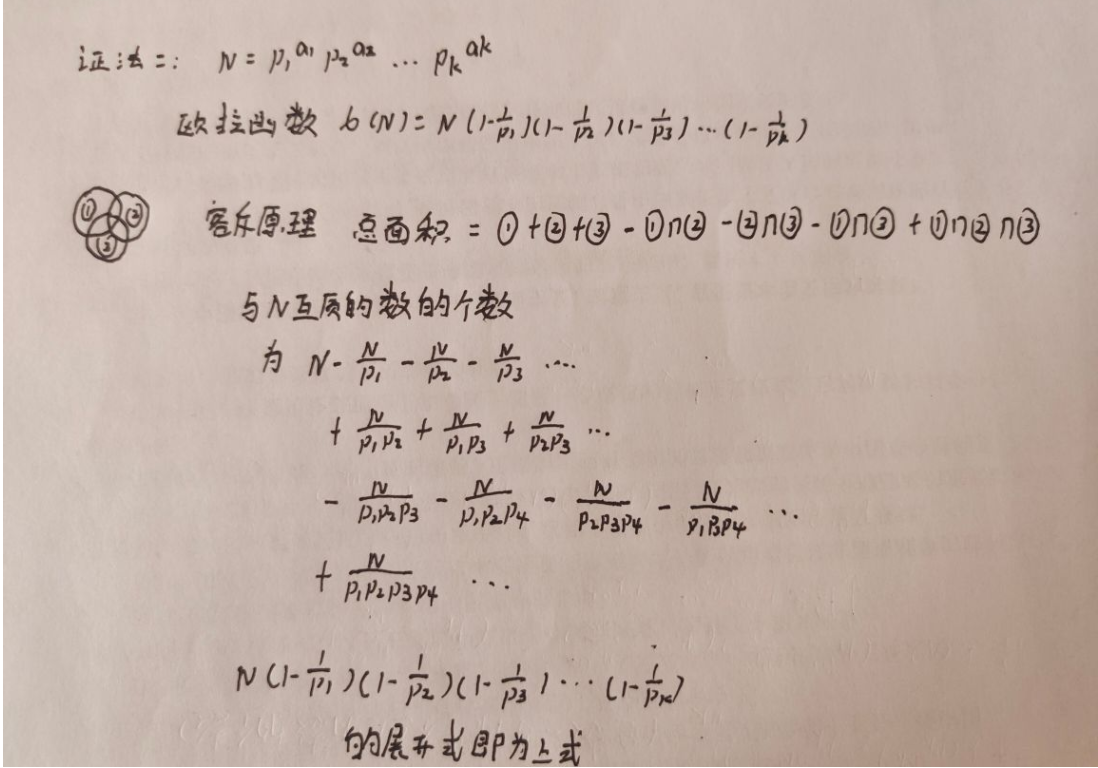 证法二: N = p₁^a₁ p₂^a₂ … pₖ^aₖ
欧拉函数 φ(N) = N(1-1/p₁)(1-1/p₂)(1-1/p₃)…(1-1/pₖ)
① ② ③
容斥原理 总面积 = ①+②+③-①∩②-②∩③-①∩③+①∩②∩③
与N互质的数的个数
为 N - N/p₁ - N/p₂ - N/p₃ …
+ N/p₁p₂ + N/p₁p₃ + N/p₂p₃ …
- N/p₁p₂p₃ - N/p₁p₂p₄ - N/p₂p₃p₄ - N/p₁p₃p₄ …
+ N/p₁p₂p₃p₄ …
N(1-1/p₁)(1-1/p₂)(1-1/p₃)…(1-1/pₖ)
的展开式即为上式